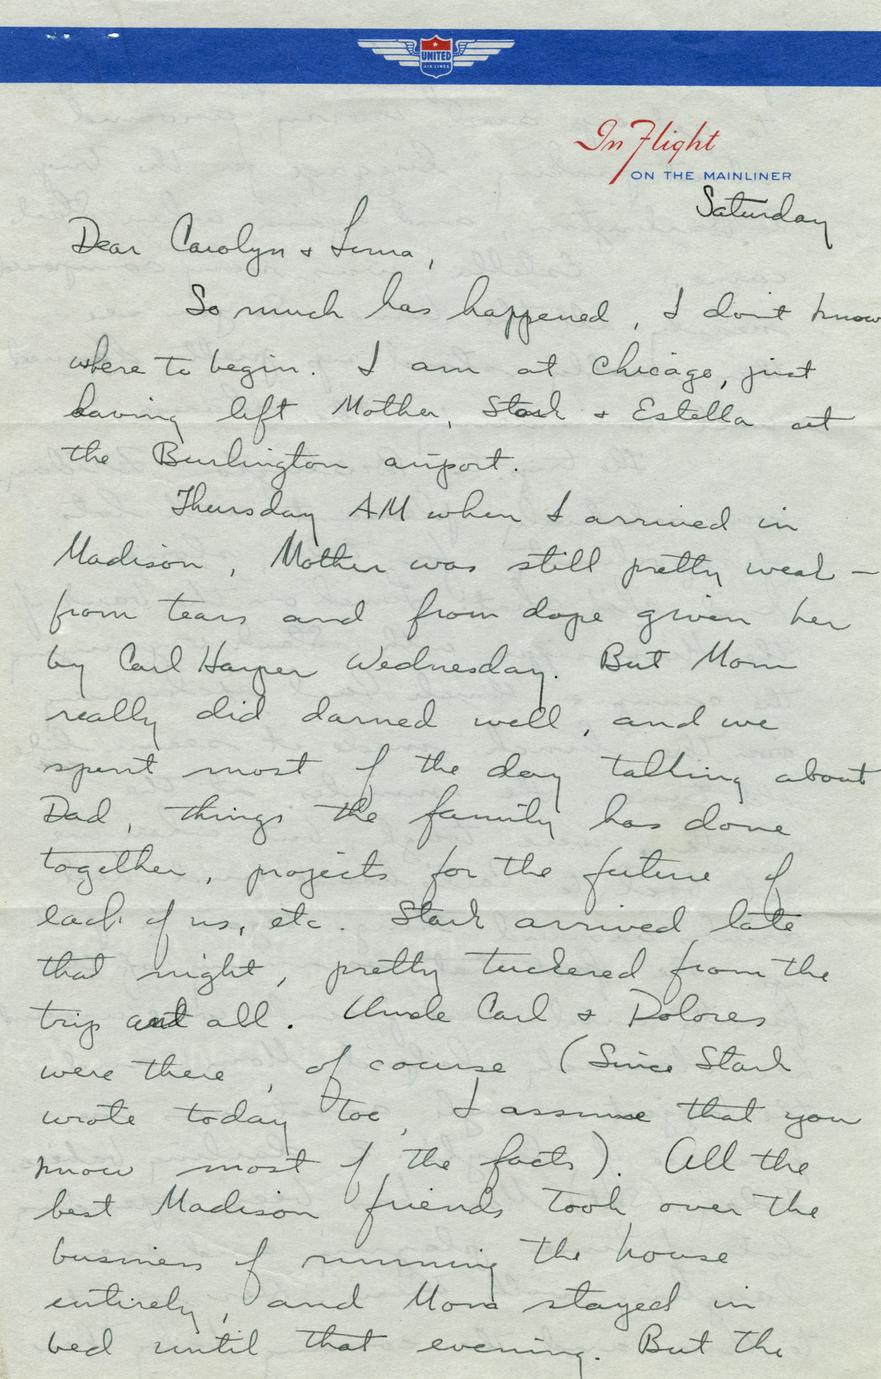 UNITED
AIR LINES
In Flight
ON THE MAINLINER
Saturday
Dear Carolyn & Lerna,
So much has happened, I don't know
where to begin. I am at Chicago, just
having left Mother, Stark & Estella at
the Burlington airport.
Thursday AM when I arrived in
Madison, Mother was still pretty weak –
from tears and from dope given her
by Carl Harper Wednesday. But Mom
really did darned well, and we
spent most of the day talking about
Dad, things the family has done
together, projects for the future of
each of us, etc. Stark arrived late
that night, pretty tuckered from the
trip and all. Uncle Carl & Dolores
were there, of course (Since Stark
wrote today too, I assume that you
know most of the facts). All the
best Madison friends took over the
business of running the house
entirely, and Mom stayed in
bed until that evening. But the